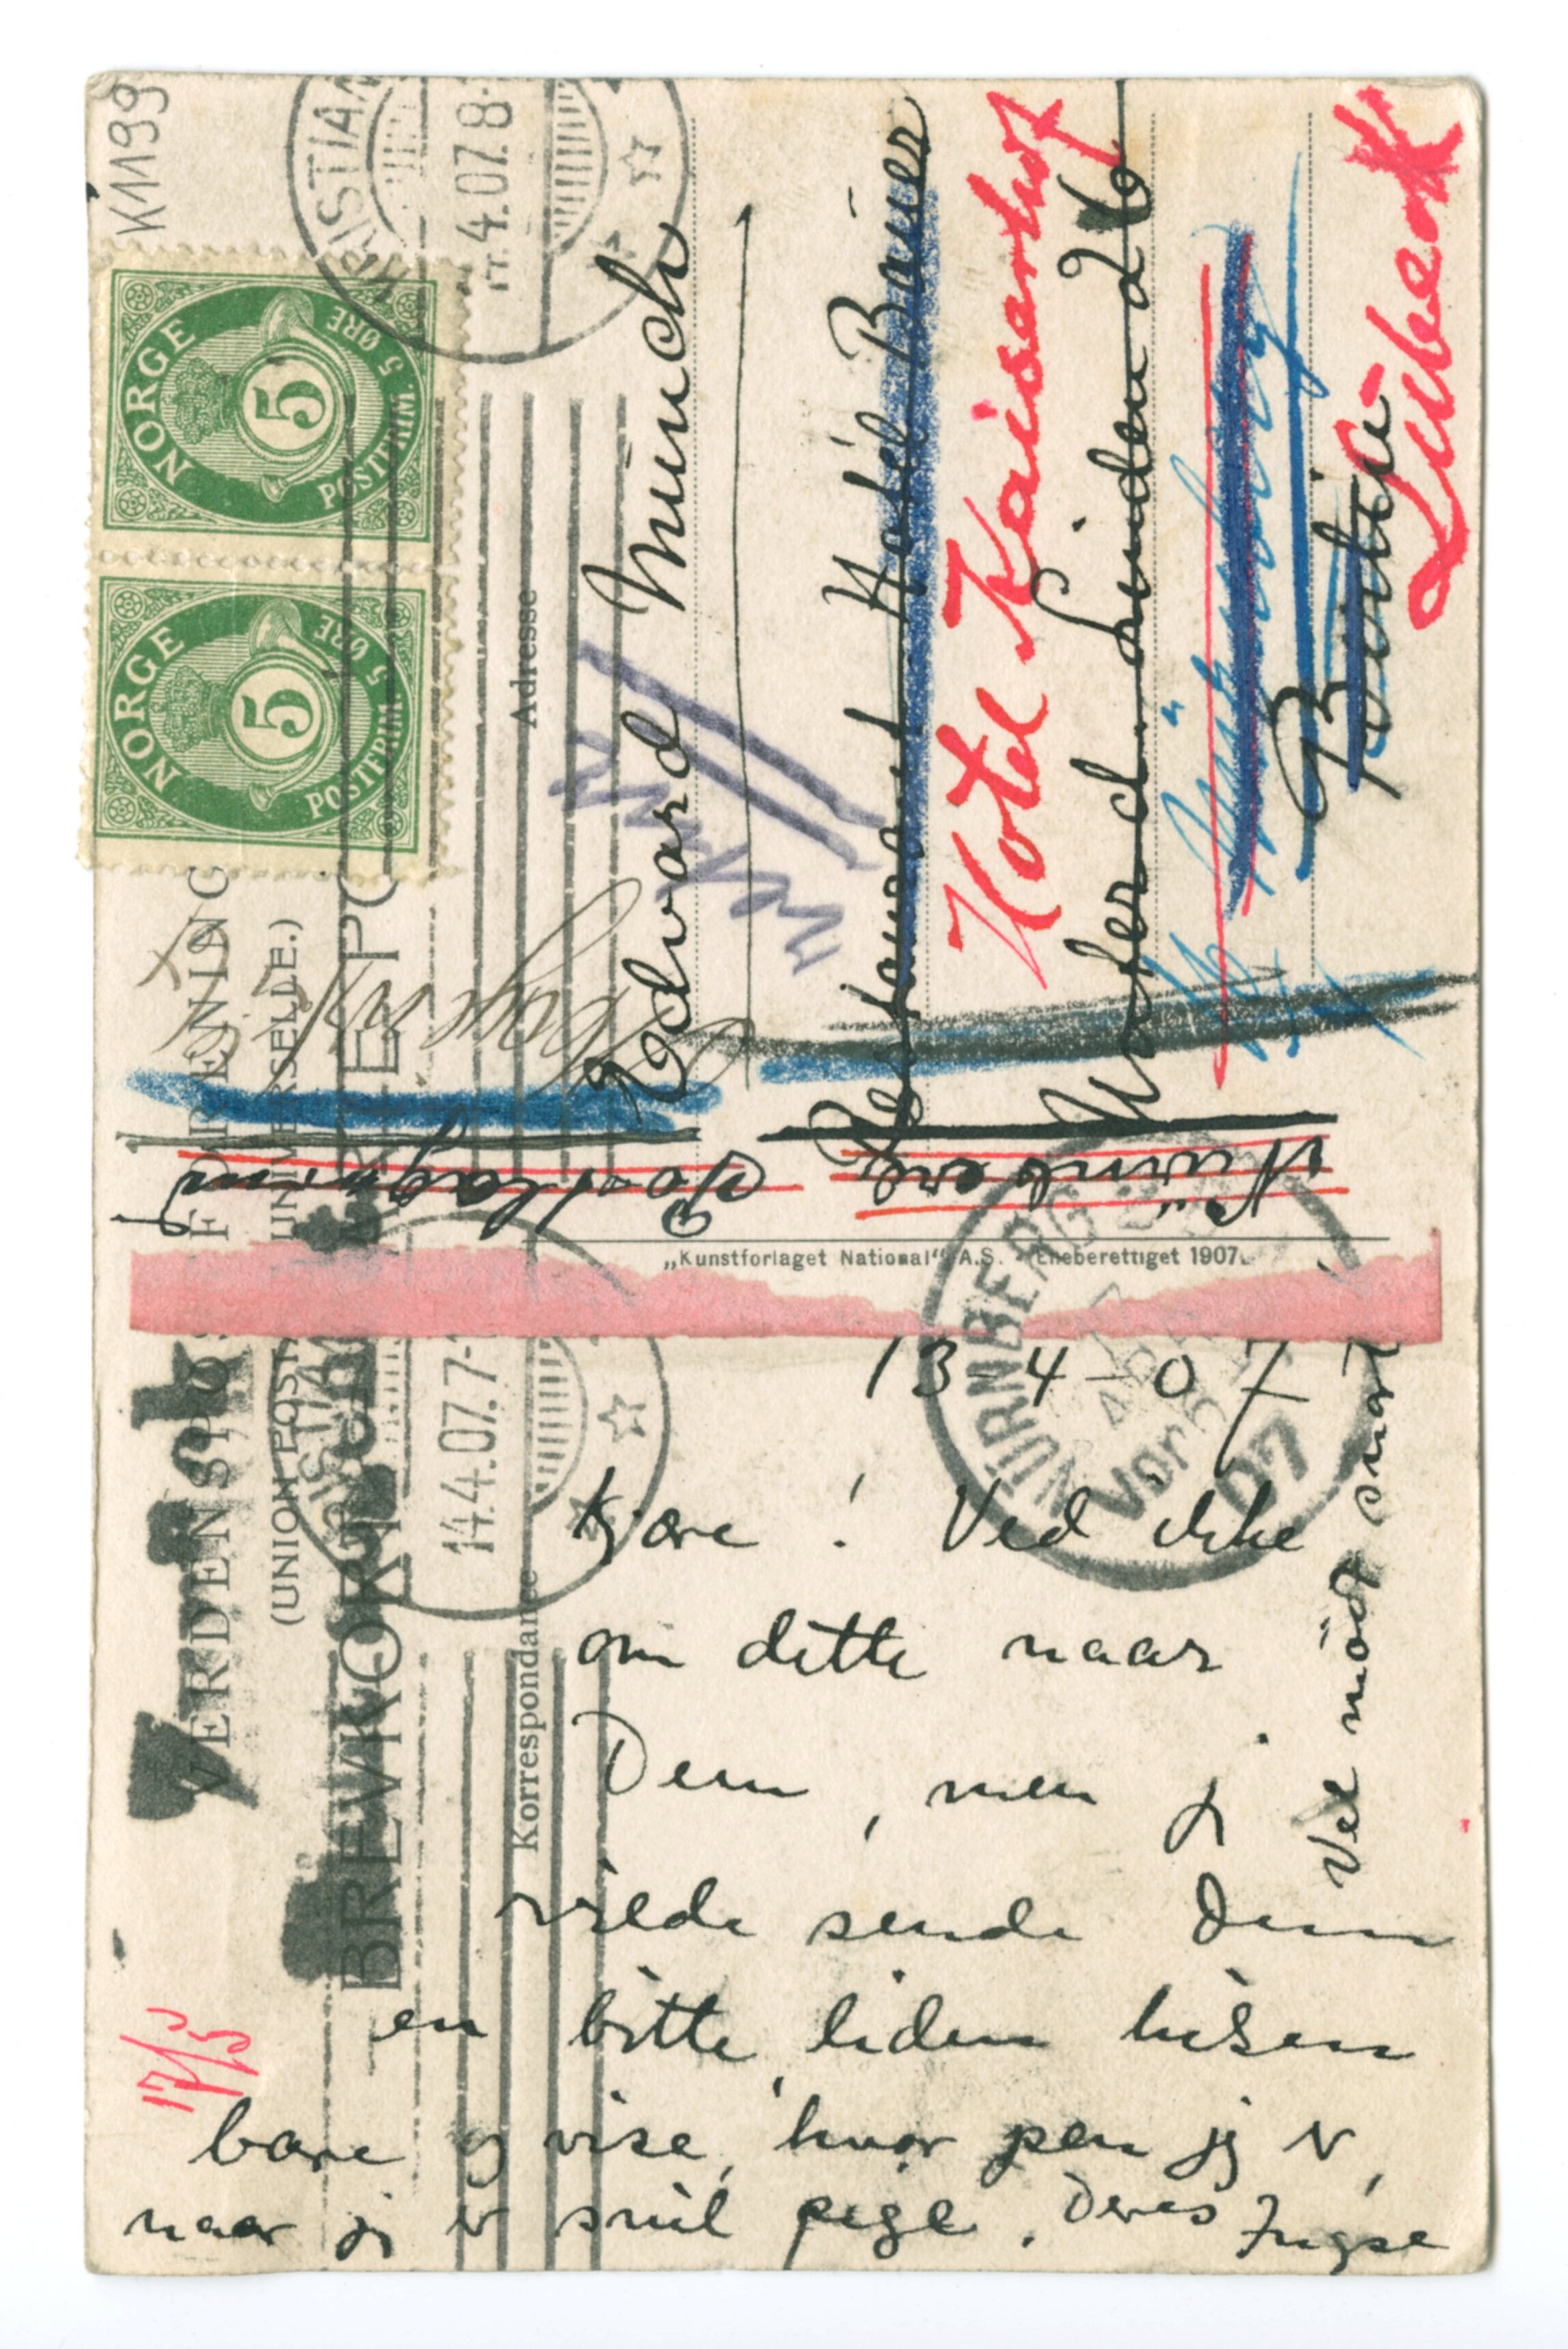 K1199
NORGE
5
POSTFRIM. 5 ØRE
NORGE
5
POSTFRIM. 5 ØRE
KRISTIAN
4.07. 8
VERDENSPOSTFORENING
(UNION POSTALE UNIVERSELLE.)
BREVKORT
Adresse
Edvard Munch
Restaurant Hotel Bauer
Hotel Kaiserhof
Unter d. Linden 26
Berlin
Lübeck
Postlagernd
Nürnberg
„Kunstforlaget National“ A.S. - Eneberettiget 1907.
NÜRNBERG
Vor
07
14.4.07. 7
Korrespondance
13-4-07
Kjære! Ved ikke
om dette naar
Dem, men j
vilde sende Dem
en bitte, liden hilsen
bare og vise, hvor pen jeg er,
naar jeg er snil pige. Deres Ingse
Vel mødt snart
17/5